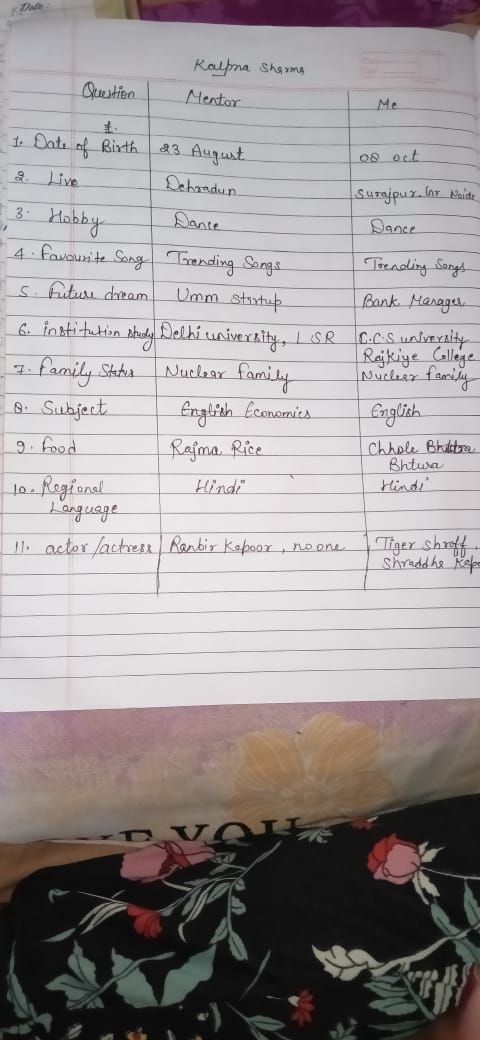 Date:
Kalpna Sharma
Question Mentor Me
1. Date of Birth 23 August 08 Oct
2. Live Dehradun Surajpur, Gr Noida
3. Hobby Dance Dance
4. Favourite Song Trending Songs Trending Songs
5. Future dream Umm Startup Bank Manager
6. institution study Delhi university, LSR C.C.S university
Rajkiye College
7. Family Status Nuclear family Nuclear family
8. Subject English Economics English
9. Food Rajma Rice Chhole
Bhtura
10. Regional Hindi Hindi
Language
11. actor/actress Ranbir Kapoor, no one Tiger Shroff,
Shraddha Kap
YOU